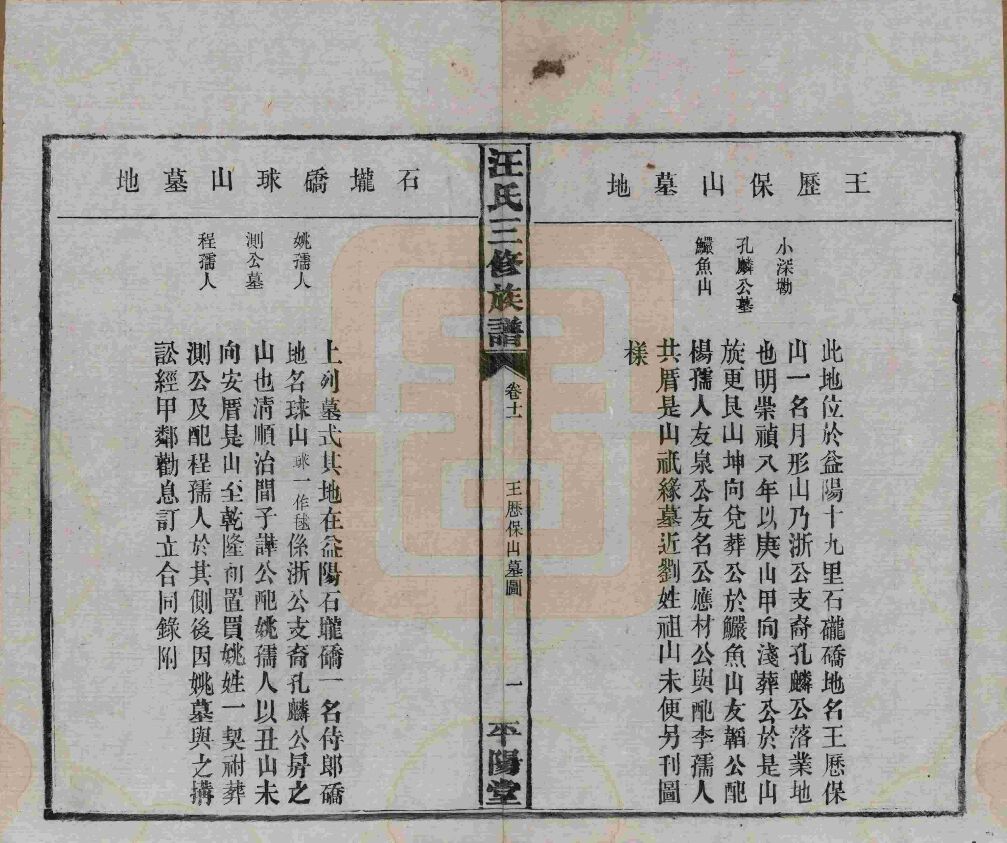 王歷保山墓地
小深坳
孔麟公墓
鱺魚山
此地位於益陽十九里石礲礄地名王厯保
山一名月形山乃浙公支裔孔麟公落業地
也明崇禎八年以庚山甲向淺葬公於是山
旋更艮山坤向兌葬公於鱺魚山友韜公配
楊孺人友泉公友名公應材公與配李孺人
共厝是山祇緣墓近劉姓祖山未便另刊圖
樣
汪氏三修族譜
卷十一
王厯保山墓圖
一
平陽堂
石壠礄球山墓地
姚孺人
測公墓
程孺人
上列墓式其地在益陽石壠礄一名侍郎礄
地名球山球一作毬係浙公支裔孔麟公昇之
山也清順治間子譁公配姚孺人以丑山未
向安厝是山至乾隆初置買姚姓一契祔葬
測公及配程孺人於其側後因姚墓與之搆
訟經甲鄰勸息訂立合同錄附